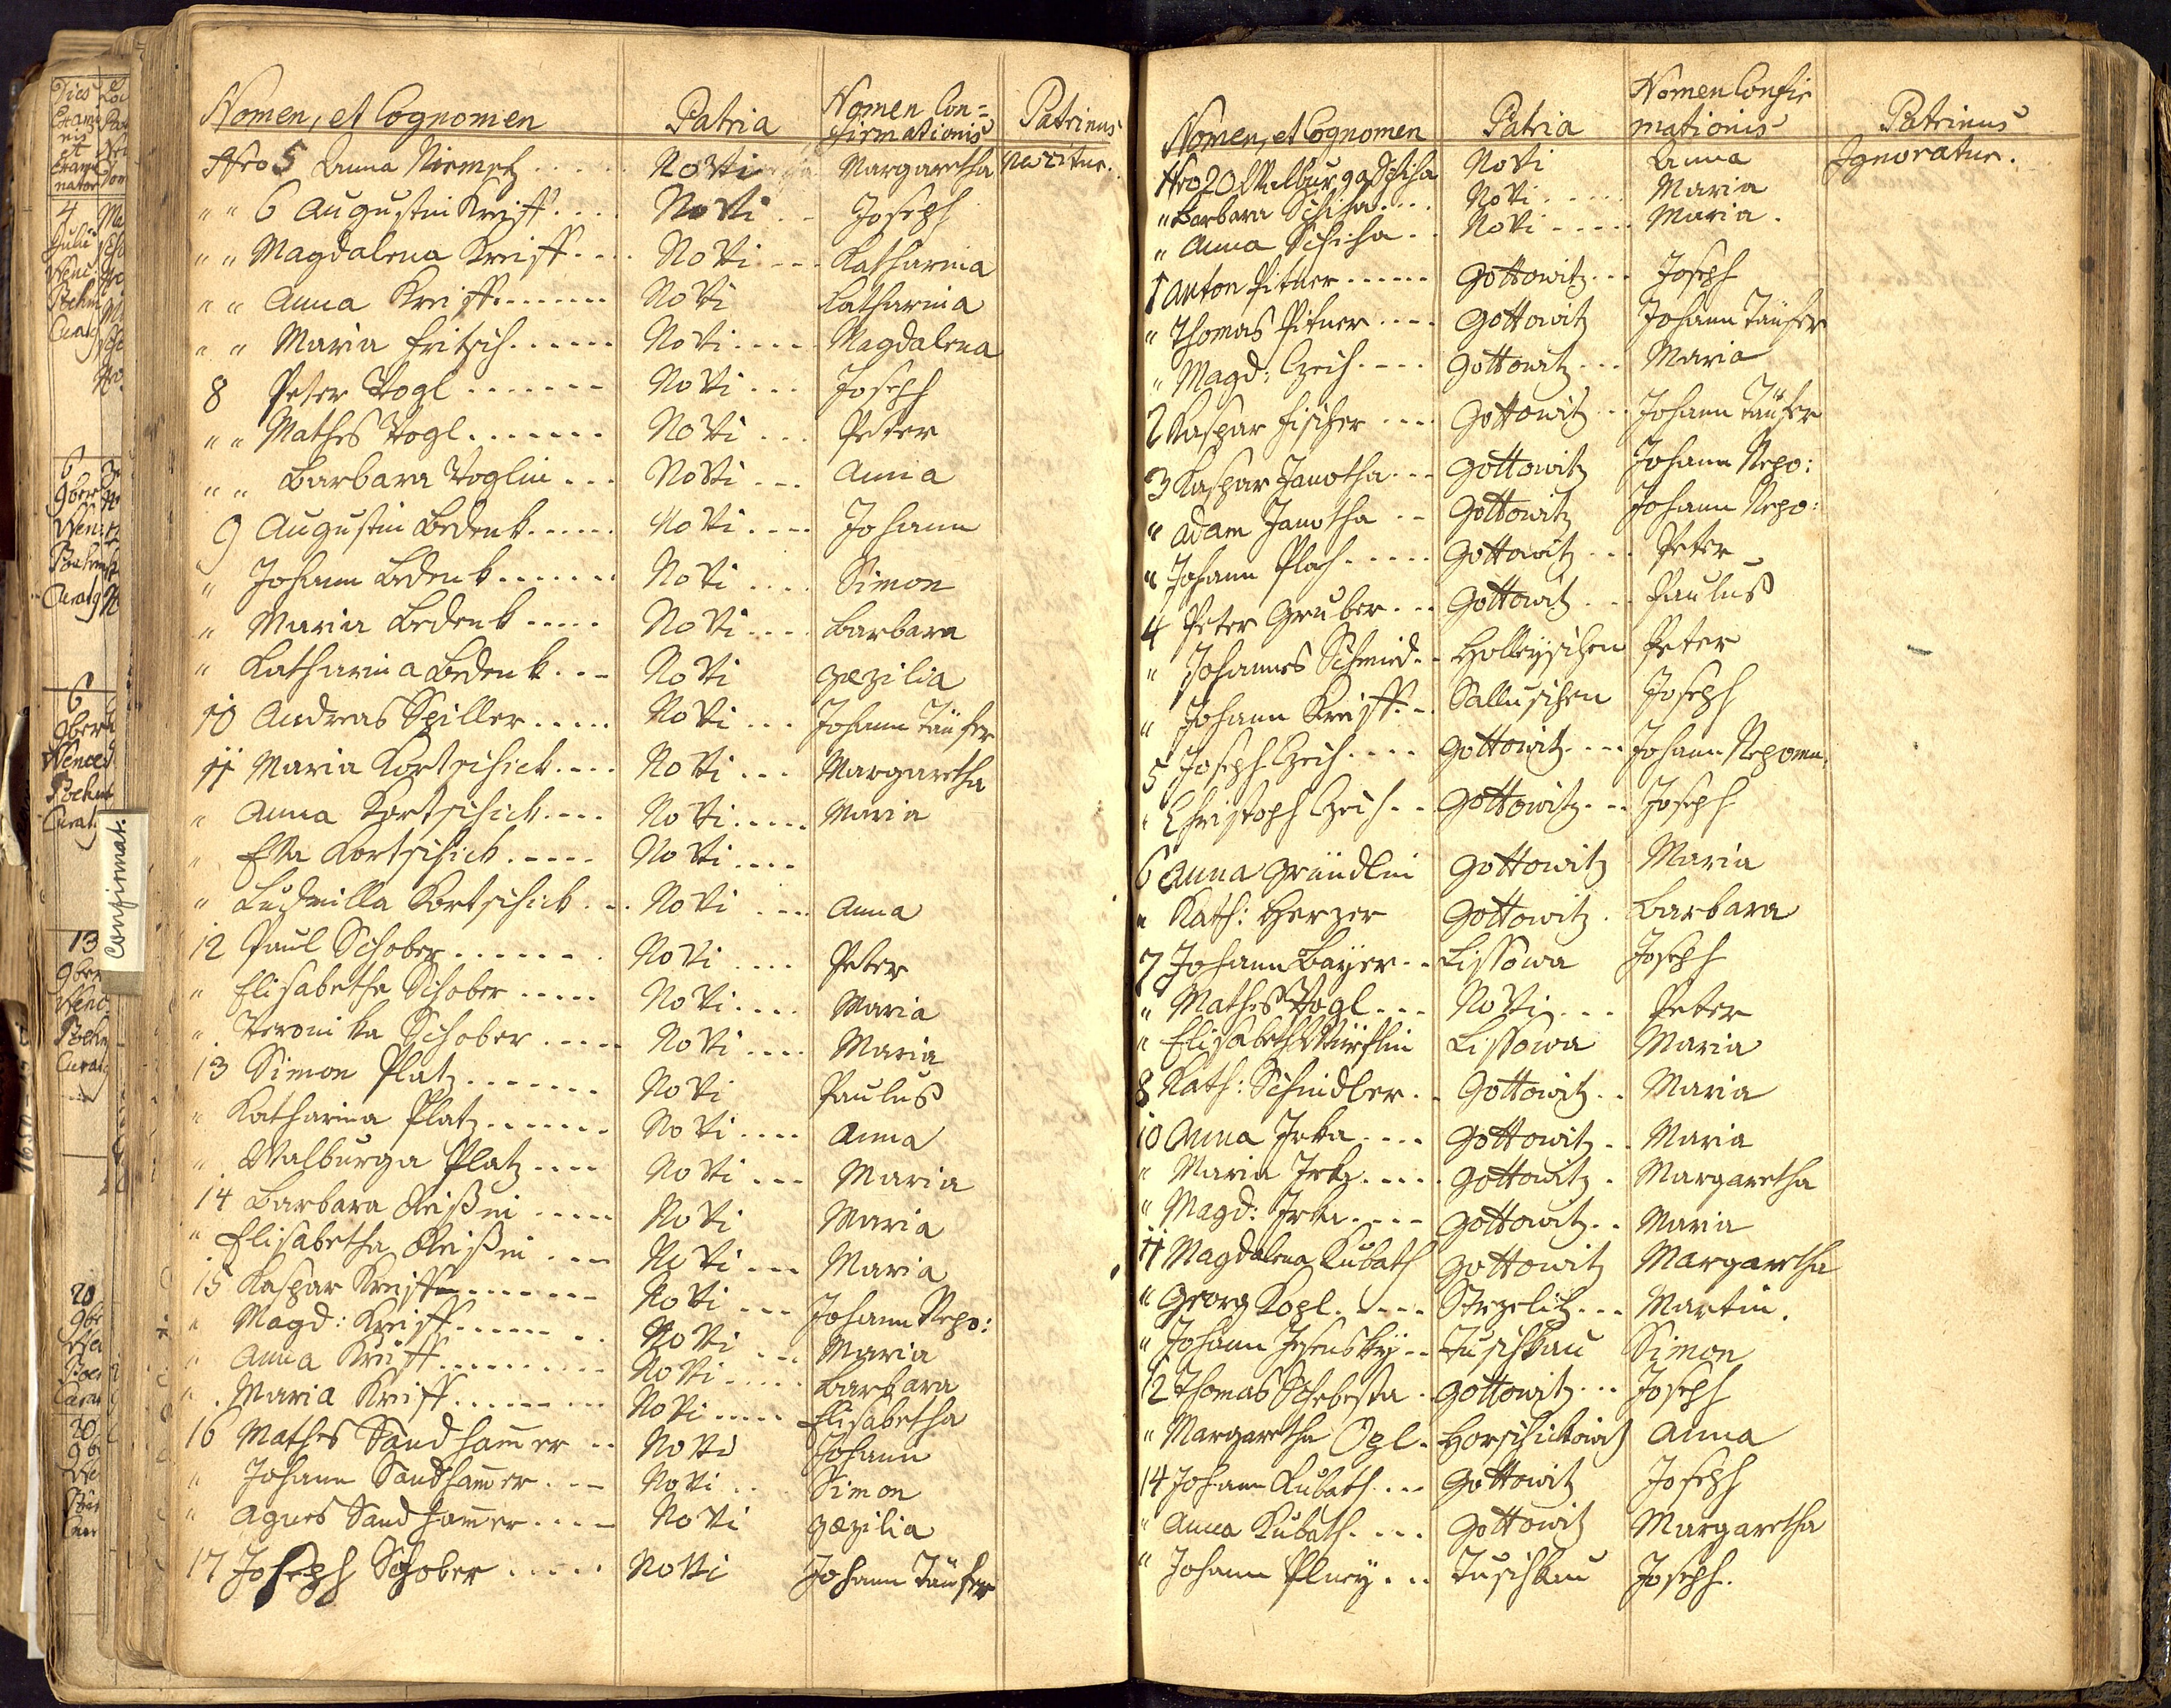 Nomen, et Cognomen Patria Nomen Con=
firmationis Patrinus
Nro 5 Anna Niemetz ..... Novi Margaretha nescitur.
" " 6 Augustin Kreiss .... Novi .. Joseph
" " Magdalena Kreiss .... Novi --- Katharina
" " Anna Kreiss ....... Novi Katharina
" " Maria Fritsch ...... Novi .... Magdalena
8 Peter Vogl ....... Novi ... Joseph
" " Mathes Vogl ....... Novi ... Peter
" " Barbara Voglin ... Novi ... Anna
9 Augustin Bedenk ..... Novi .... Johann
" Johann Bedenk ....... Novi .... Simon
" Maria Bedenk ..... Novi .... Barbara
" Katharina Bedenk ... Novi Zæzilia
10 Andreas Spiller ..... Novi ... Johann Täufer
11 Maria Kortschick .... Novi ... Margaretha
" Anna Kortschick .... Novi ..... Maria
" Eva Kortschick ..... Novi ....
" Ludmilla Kortschick ... Novi .... Anna
12 Paul Schober ....... Novi .... Peter
" Elisabetha Schober ..... Novi .... Maria
" Veronika Schober ..... Novi .... Maria
13 Simon Platz ....... Novi Paulus
" Katharina Platz ....... Novi .... Anna
" Walburga Platz .... Novi ... Maria
14 Barbara Reißin ..... Novi Maria
" Elisabetha Reißin .... Novi ... Maria
15 Kaspar Kreiss ....... Novi ... Johann Nepo:
" Magd: Kreiss ....... Novi ... Maria
" Anna Kreiss ......... Novi ..... Barbara
" Maria Kreiss ........ Novi ..... Elisabetha
16 Mathes Sandhammer .. Novi Johann
" Johann Sandhammer ... Novi .. Simon
" Agnes Sandhammer .... Novi Zæzilia
17 Joseph Schober ..... Novi Johann Täufer
Confirmat.
Nomen, et Cognomen Patria Nomen Confir
mationis Patrinus
Nro 20 Walburga Schiha Novi Anna Ignoratur.
" Barbara Schiha .... Novi ..... Maria
" Anna Schiha .. Novi ..... Maria.
1 Anton Pitner ...... Gottowitz ... Joseph
" Thomas Pitner .... Gottowitz Johann Täufer
" Magd: Czech .... Gottowitz ... Maria
2 Kaspar Fischer .... Gottowitz .. Johann Täufer
3 Kaspar Janotha ... Gottowitz Johann Nepo:
" Adam Janotha .. Gottowitz Johann Nepo:
" Johann Plach ..... Gottowitz ... Peter
4 Peter Gruber ... Gottowitz ... Paulus
" Johannes Schmied .. Holleyschen Peter
" Johann Kreiss .. Salluschen Joseph
5 Joseph Czech .... Gottowitz .... Johann Nepomu:
" Christoph Czech .. Gottowitz ... Joseph
6 Anna Gründlin Gottowitz Maria
" Kath: Herzer Gottowitz . Barbara
7 Johann Bayer .. Lissowa Joseph
" Mathes Vogl ... Novi ... Peter
" Elisabeth Würflin Lissowa Maria
8 Kath: Schindler .. Gottowitz .. Maria
10 Anna Irka .... Gottowitz .. Maria
" Maria Irka ..... Gottowitz . Margaretha
" Magd: Irka .... Gottowitz .. Maria
11 Magdalena Kubath Gottowitz Margaretha
" Georg Kopl ..... Strzelitz ... Martin.
" Johann Jesensky .. Tuschkau Simon
12 Thomas Schebesta . Gottowitz ... Joseph
" Margaretha Opl . Horschickowitz Anna
14 Johann Kubath .... Gottowitz Joseph
" Anna Kubath .... Gottowitz Margaretha
" Johann Pluey ... Tuschkau Joseph.